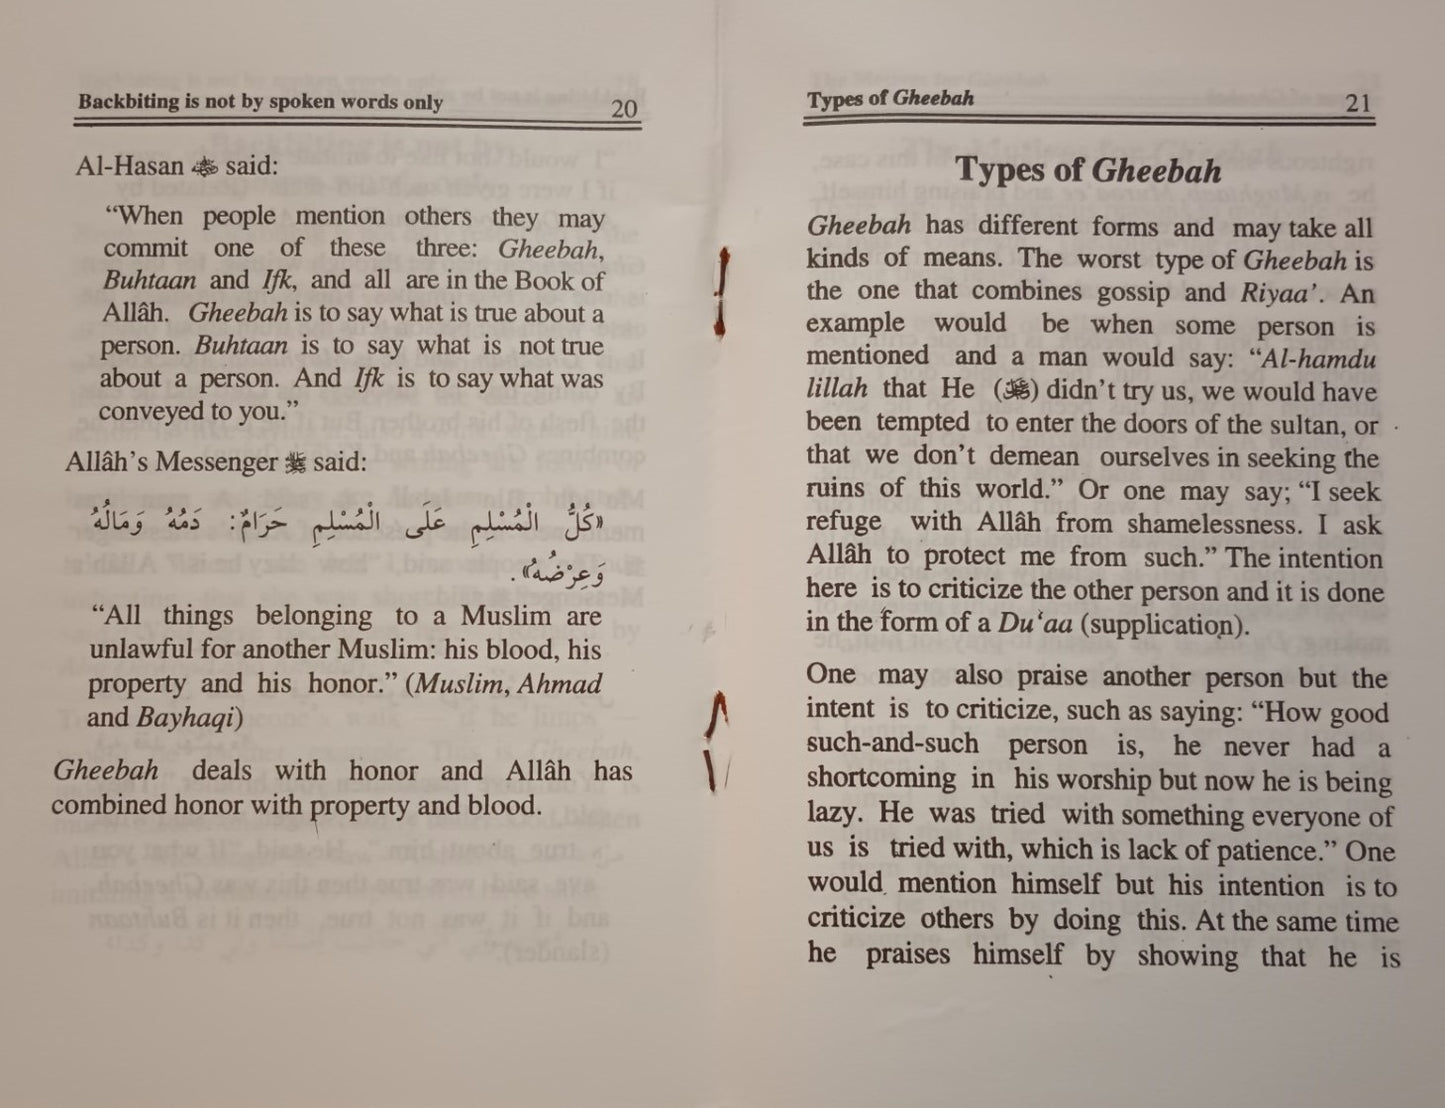 Backbiting is not by spoken words only 20
Al-Hasan said:
“When people mention others they may
commit one of these three: Gheebah,
Buhtaan and Ifk, and all are in the Book of
Allâh. Gheebah is to say what is true about a
person. Buhtaan is to say what is not true
about a person. And Ifk is to say what was
conveyed to you.”
Allâh’s Messenger ﷺ said:
«كُلُّ الْمُسْلِمِ عَلَى الْمُسْلِمِ حَرَامٌ: دَمُهُ وَمَالُهُ
وَعِرْضُهُ».
“All things belonging to a Muslim are
unlawful for another Muslim: his blood, his
property and his honor.” (Muslim, Ahmad
and Bayhaqi)
Gheebah deals with honor and Allâh has
combined honor with property and blood.
Types of Gheebah 21
Types of Gheebah
Gheebah has different forms and may take all
kinds of means. The worst type of Gheebah is
the one that combines gossip and Riyaa’. An
example would be when some person is
mentioned and a man would say: “Al-hamdu
lillah that He () didn’t try us, we would have
been tempted to enter the doors of the sultan, or
that we don’t demean ourselves in seeking the
ruins of this world.” Or one may say; “I seek
refuge with Allâh from shamelessness. I ask
Allâh to protect me from such.” The intention
here is to criticize the other person and it is done
in the form of a Du‘aa (supplication).
One may also praise another person but the
intent is to criticize, such as saying: “How good
such-and-such person is, he never had a
shortcoming in his worship but now he is being
lazy. He was tried with something everyone of
us is tried with, which is lack of patience.” One
would mention himself but his intention is to
criticize others by doing this. At the same time
he praises himself by showing that he is